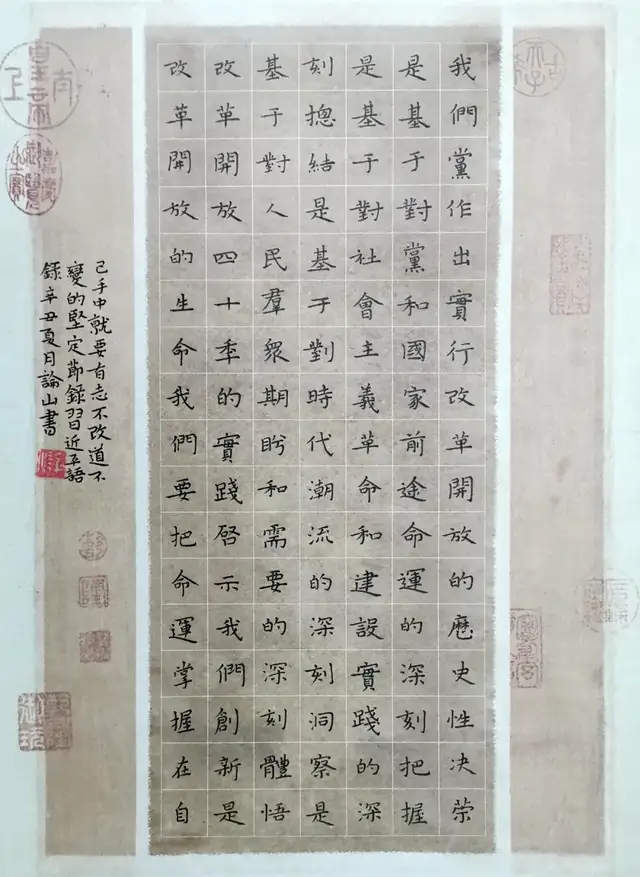 我們黨作出實行改革開放的歷史性决策
是基于對黨和國家前途命運的深刻把握
是基于對社會主義革命和建設實踐的深
刻摠結是基于對時代潮流的深刻洞察是
基于對人民羣衆期盼和需要的深刻體悟
改革開放四十秊的實踐啓示我們創新是
改革開放的生命我們要把命運掌握在自
己手中就要有志不改道不
變的堅定節録習近平語
録辛丑夏月論山書